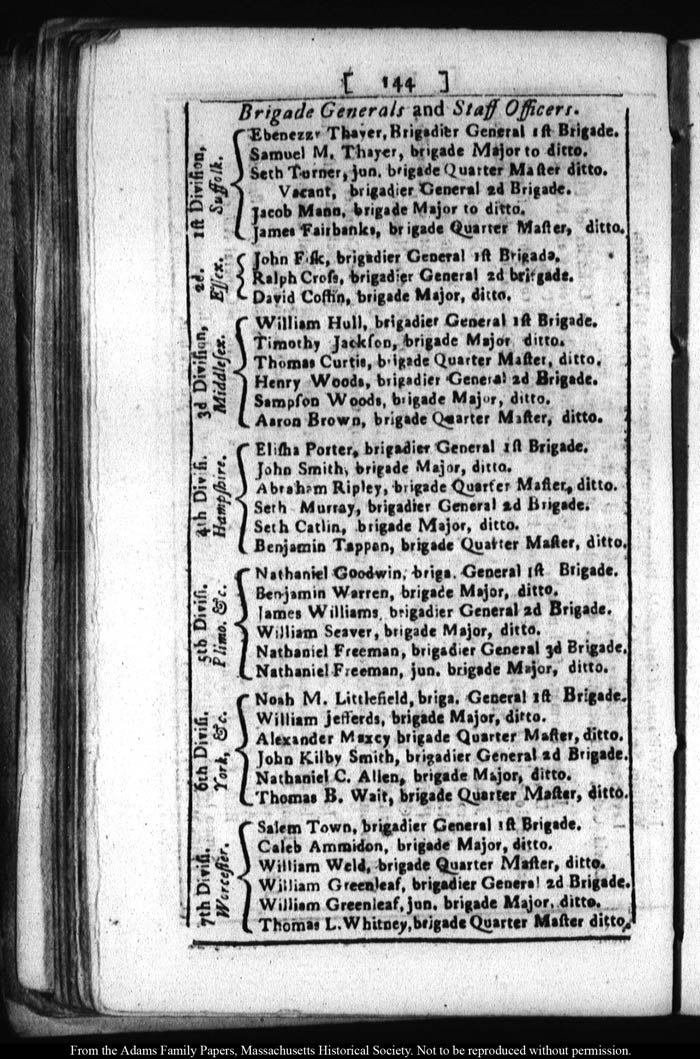 [ 144 ]
Brigade Generals and Staff Officers.
1ſt Diviſion,
Suffolk.
Ebenezer Thayer, Brigadier General 1ſt Brigade.
Samuel M. Thayer, brigade Major to ditto.
Seth Turner, jun. brigade Quarter Maſter ditto.
Vacant, brigadier General 2d Brigade.
Jacob Mann, brigade Major to ditto.
James Fairbanks, brigade Quarter Maſter, ditto.
2d.
Eſſex.
John Fiſk, brigadier General 1ſt Brigada.
Ralph Croſs, brigadier General 2d brigade.
David Coffin, brigade Major, ditto.
3d Diviſion,
Middleſex.
William Hull, brigadier General 1ſt Brigade.
Timothy Jackſon, brigade Major ditto.
Thomas Curtis, brigade Quarter Maſter, ditto.
Henry Woods, brigadier General 2d Brigade.
Sampſon Woods, brigade Major, ditto.
Aaron Brown, brigade Quarter Maſter, ditto.
4th Diviſi.
Hampſhire.
Eliſha Porter, brigadier General 1ſt Brigade.
John Smith, brigade Major, ditto.
Abraham Ripley, brigade Quarter Maſter, ditto.
Seth Murray, brigadier General 2d Brigade.
Seth Catlin, brigade Major, ditto.
Benjamin Tappan, brigade Quarter Maſter, ditto.
5th Diviſi.
Plimo. &c.
Nathaniel Goodwin, briga. General 1ſt Brigade.
Benjamin Warren, brigade Major, ditto.
James Williams, brigadier General 2d Brigade.
William Seaver, brigade Major, ditto.
Nathaniel Freeman, brigadier General 3d Brigade.
Nathaniel Freeman, jun. brigade Major, ditto.
6th Diviſi.
York, &c.
Noah M. Littlefield, briga. General 1ſt Brigade.
William Jefferds, brigade Major, ditto.
Alexander Maxcy brigade Quarter Maſter, ditto.
John Kilby Smith, brigadier General 2d Brigade.
Nathaniel C. Allen, brigade Major, ditto.
Thomas B. Wait, brigade Quarter Maſter, ditto.
7th Diviſi.
Worceſter.
Salem Town, brigadier General 1ſt Brigade.
Caleb Ammidon, brigade Major, ditto.
William Weld, brigade Quarter Maſter, ditto.
William Greenleaf, brigadier General 2d Brigade.
William Greenleaf, jun. brigade Major, ditto.
Thomas L. Whitney, brigade Quarter Maſter ditto.
From the Adams Family Papers, Massachusetts Historical Society. Not to be reproduced without permission.